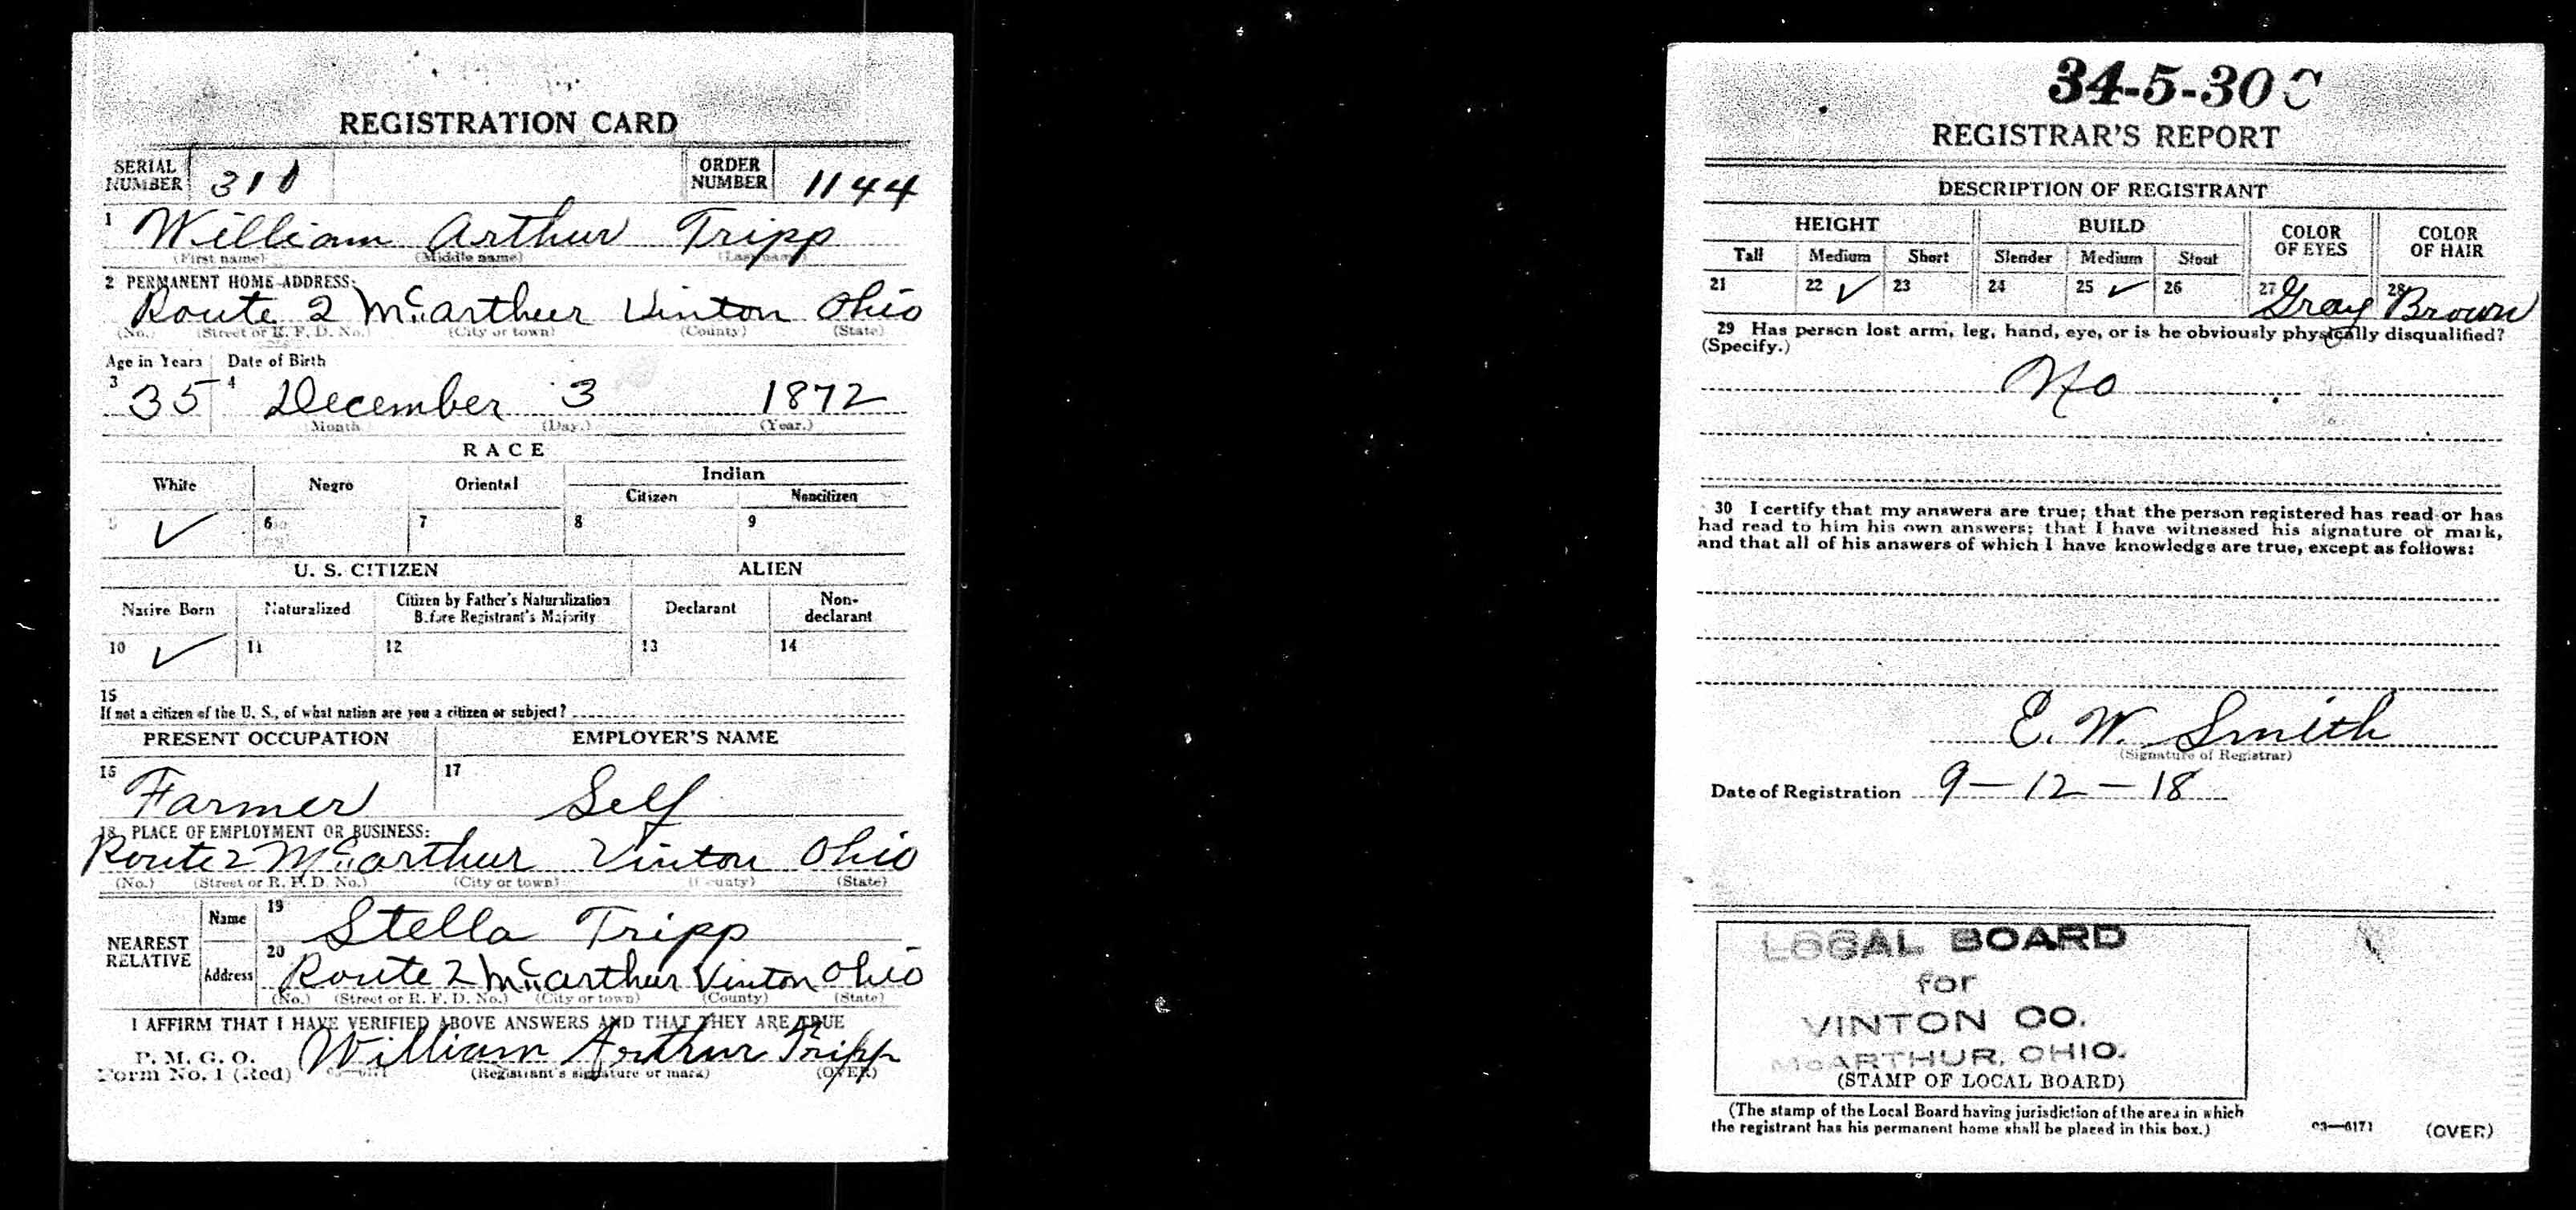 REGISTRATION CARD
SERIAL NUMBER 311 ORDER NUMBER 1144
1 William Arthur Tripp
(First name) (Middle name) (Last name)
2 PERMANENT HOME ADDRESS:
Route 2 McArthur Vinton Ohio
(No.) (Street or R. F. D. No.) (City or town) (County) (State)
Age in Years Date of Birth
3 35 4 December 3 1872
(Month.) (Day.) (Year.)
RACE
White Negro Oriental Indian
Citizen Noncitizen
5 ✓ 6 7 8 9
U. S. CITIZEN ALIEN
Native Born Naturalized Citizen by Father's Naturalization Before Registrant's Majority Declarant Non-declarant
10 ✓ 11 12 13 14
15
If not a citizen of the U. S., of what nation are you a citizen or subject?
PRESENT OCCUPATION EMPLOYER'S NAME
16 Farmer 17 Self
18 PLACE OF EMPLOYMENT OR BUSINESS:
Route 2 McArthur Vinton Ohio
(No.) (Street or R. F. D. No.) (City or town) (County) (State)
NEAREST RELATIVE
Name 19 Stella Tripp
Address 20 Route 2 McArthur Vinton Ohio
(No.) (Street or R. F. D. No.) (City or town) (County) (State)
I AFFIRM THAT I HAVE VERIFIED ABOVE ANSWERS AND THAT THEY ARE TRUE
P. M. G. O.
Form No. 1 (Red) 03—6171 William Arthur Tripp
(Registrant's signature or mark) (OVER)
34-5-30 C
REGISTRAR'S REPORT
DESCRIPTION OF REGISTRANT
HEIGHT BUILD COLOR OF EYES COLOR OF HAIR
Tall Medium Short Slender Medium Stout
21 22 ✓ 23 24 25 ✓ 26 27 Gray 28 Brown
29 Has person lost arm, leg, hand, eye, or is he obviously physically disqualified?
(Specify.)
No
30 I certify that my answers are true; that the person registered has read or has
had read to him his own answers; that I have witnessed his signature or mark,
and that all of his answers of which I have knowledge are true, except as follows:
E. W. Smith
(Signature of Registrar)
Date of Registration 9-12-18
LOCAL BOARD
for
VINTON CO.
McARTHUR, OHIO.
(STAMP OF LOCAL BOARD)
(The stamp of the Local Board having jurisdiction of the area in which
the registrant has his permanent home shall be placed in this box.)
03—6171 (OVER)